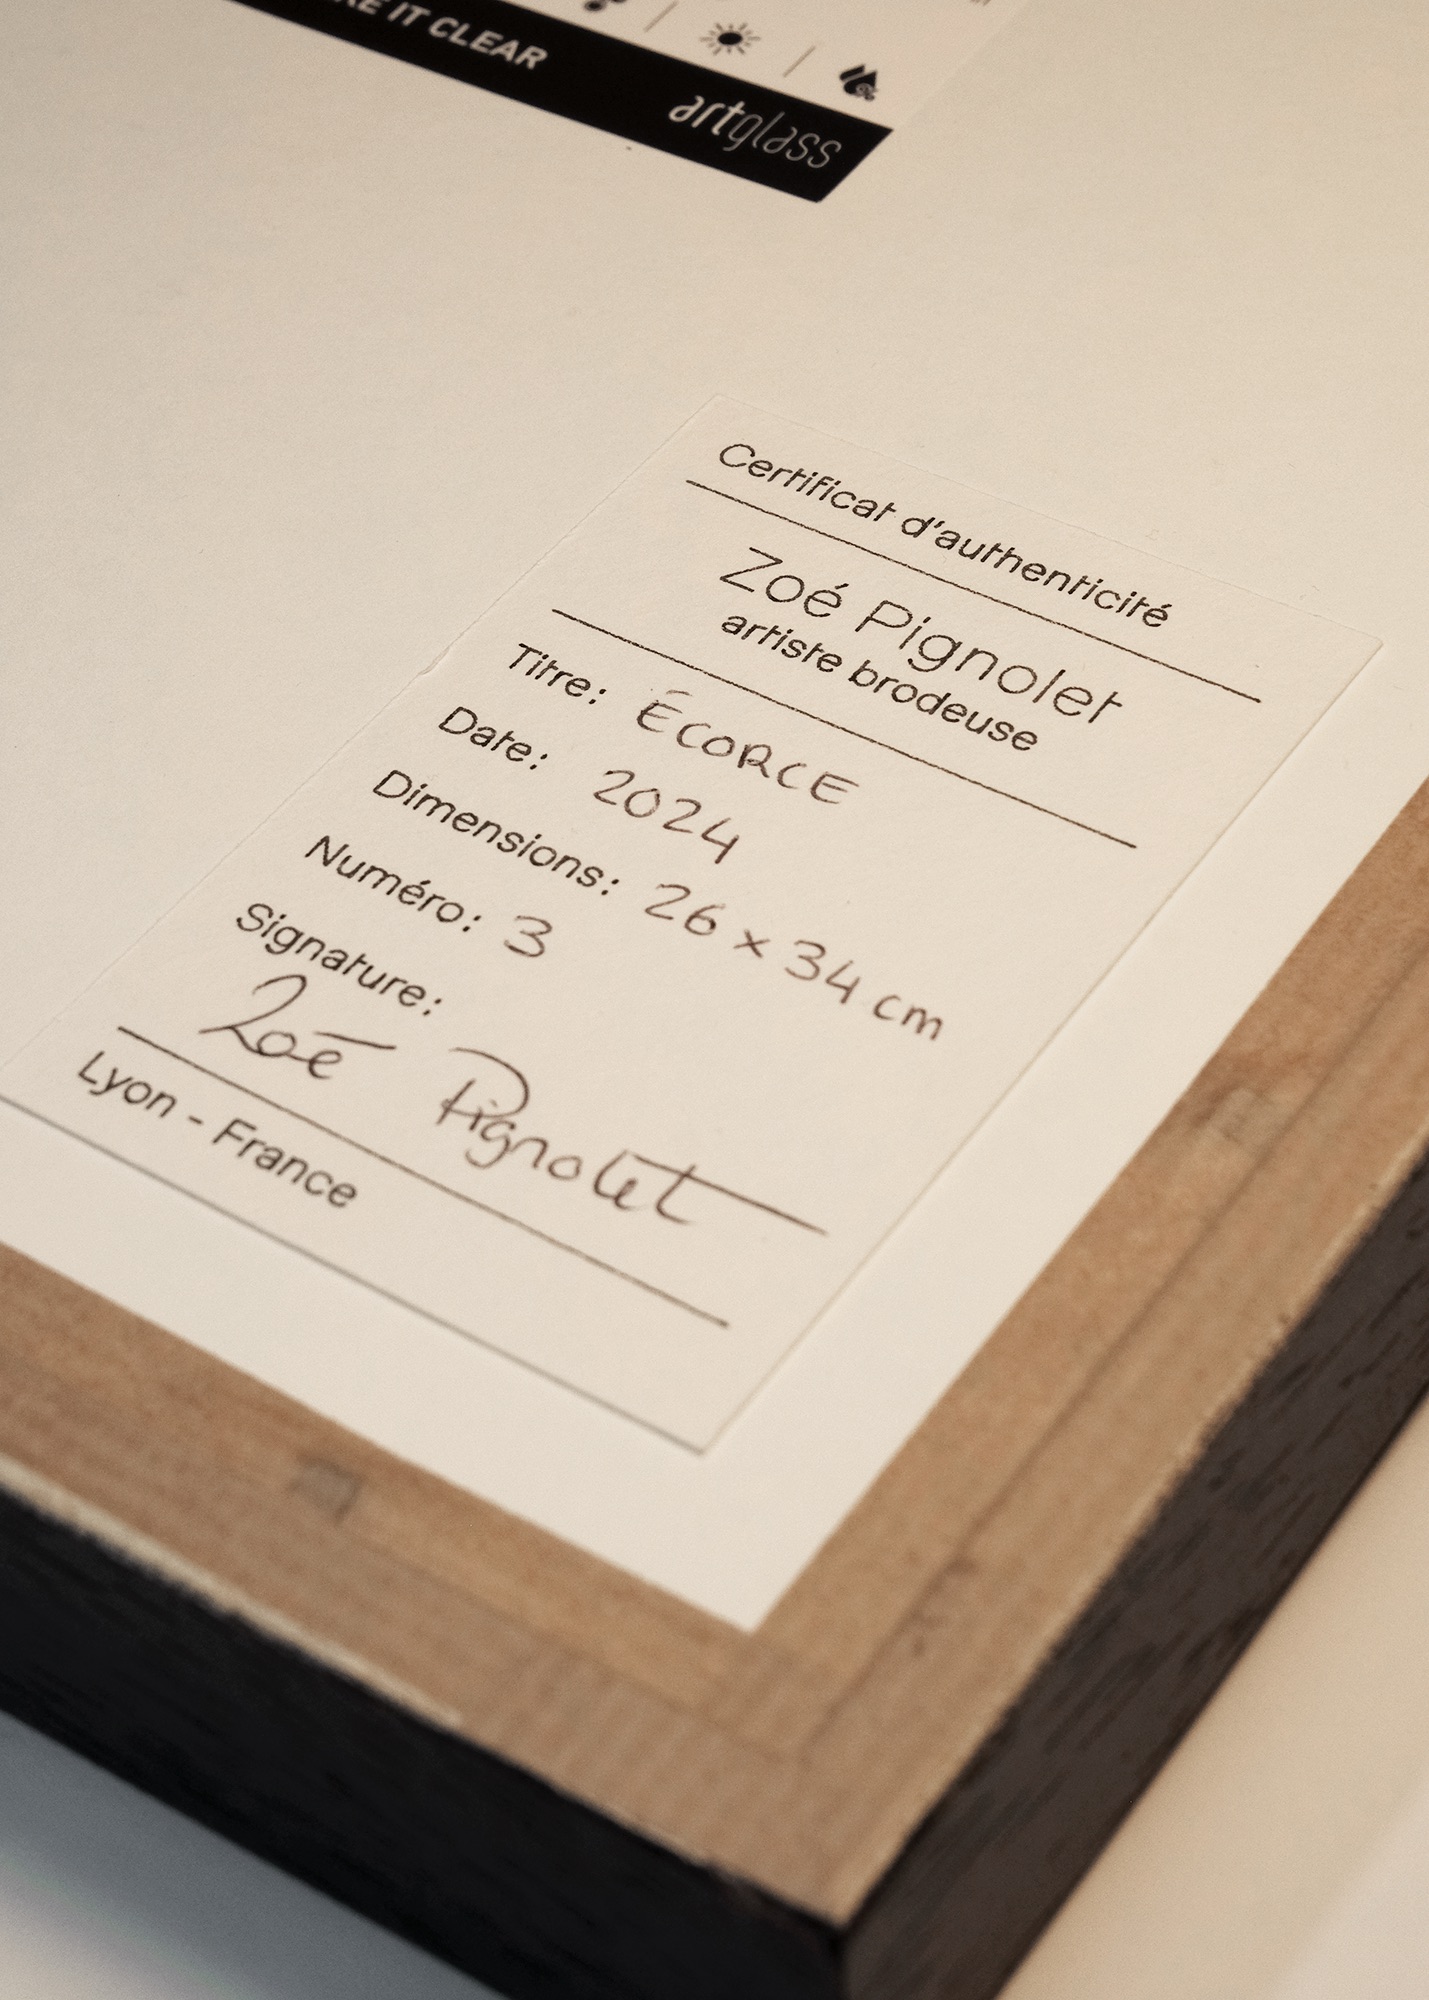 IT CLEAR
artglass
Certificat d'authenticité
Zoé Pignolet
artiste brodeuse
Titre: ÉCORCE
Date: 2024
Dimensions: 26 x 34 cm
Numéro: 3
Signature:
Zoé Pignolet
Lyon - France